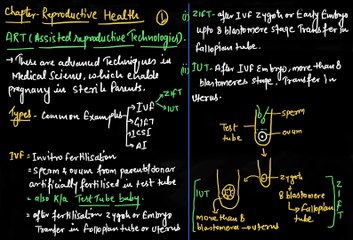 Chapter- Reproductive Health
①
ART (Assisted reproductive Technologies)
→ These are advanced Techniques in
Medical Science, which enable
pregnancy in sterile Parents.
Types - Common Examples
→ IVF
→ ZIFT
→ IUT
→ GIFT
→ ICSI
→ AI
IVF = Invitro fertilisation
= Sperm & ovum from parent/donor
artificially fertilised in test tube
- also k/a Test Tube baby.
= after fertilisation Zygote or Embryo
Transfer in Fallopian tube or uterus
(i) ZIFT- after IVF Zygote or Early Embryo
upto 8 blastomere stage Transfer in
Fallopian tube.
(ii) IUT- After IVF Embryo, more than 8
blastomeres stage. Transfer in
Uterus.
sperm
Test
tube
ovum
IUT
zygote
8 blastomere
→ Fallopian
tube
more than 8
blastomeres → uterus
Z
I
F
T